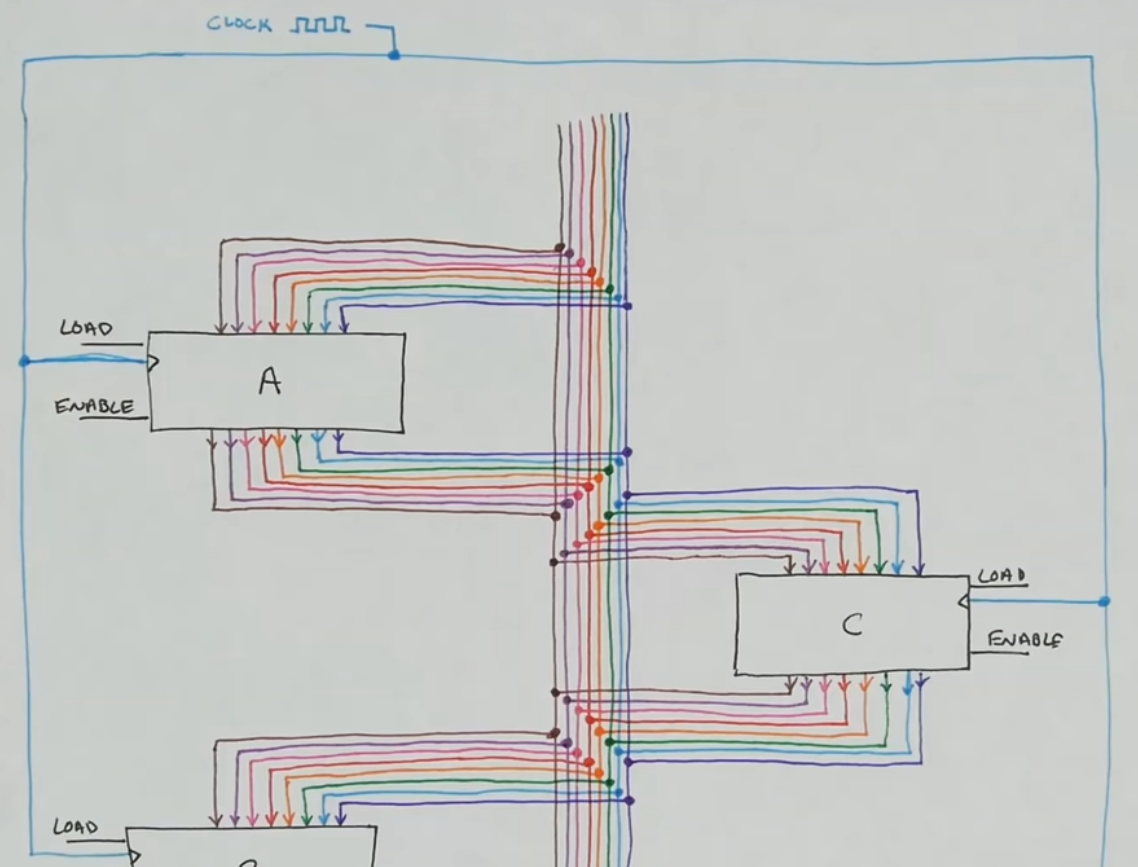 CLOCK
LOAD
A
ENABLE
LOAD
C
ENABLE
LOAD